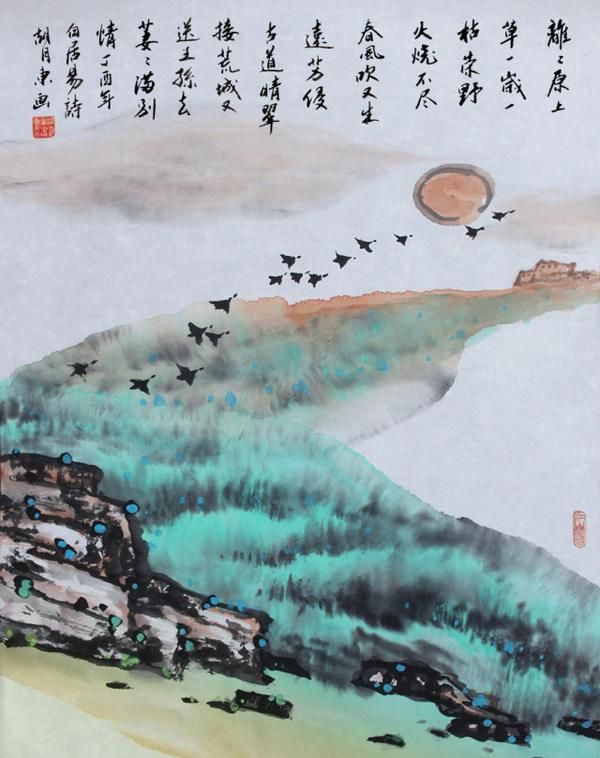 離〻原上
草一歲一
枯荣野
火烧不尽
春風吹又生
遠芳侵
古道晴翠
接荒城又
送王孫去
萋〻滿別
情丁酉年
白居易詩
胡月東画